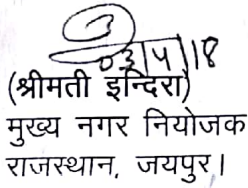 03/5/18
(श्रीमती इन्दिरा)
मुख्य नगर नियोजक
राजस्थान, जयपुर।